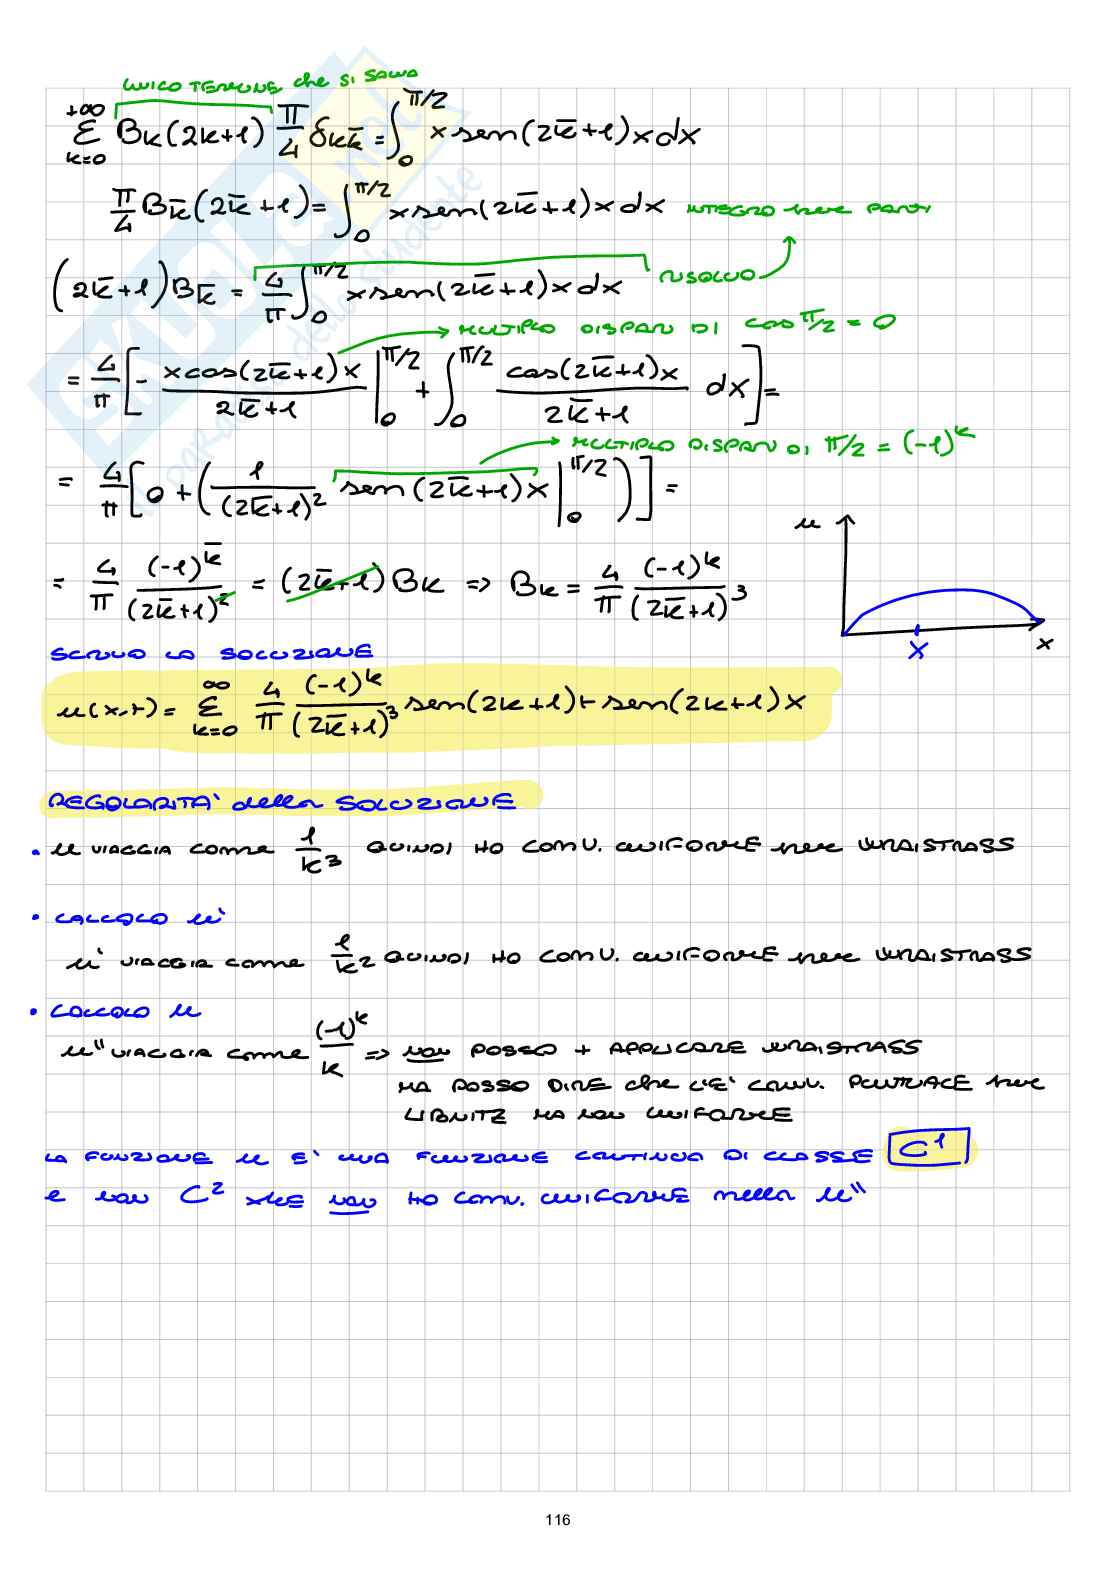 UNICO TERMINE che SI SALVA
+∞ Σ k=0 Bk(2k+1) π/4 δkk̄ = ∫₀^π/2 x sen(2k̄+1)x dx
π/4 Bk̄(2k̄+1) = ∫₀^π/2 x sen(2k̄+1)x dx INTEGRO per PARTI
(2k̄+1)Bk̄ = 4/π ∫₀^π/2 x sen(2k̄+1)x dx RISOLVO
MULTIPLO DISPARI DI cos π/2 = 0
= 4/π [ - x cos(2k̄+1)x / 2k̄+1 |₀^π/2 + ∫₀^π/2 cos(2k̄+1)x / 2k̄+1 dx ] =
MULTIPLO DISPARI DI π/2 = (-1)^k
= 4/π [ 0 + ( 1/(2k̄+1)² sen(2k̄+1)x |₀^π/2 ) ] =
u
= 4/π (-1)^k̄ / (2k̄+1)² = (2k̄+1)Bk => Bk = 4/π (-1)^k / (2k̄+1)³
x x
SCRIVO LA SOLUZIONE
u(x,t) = ∞ Σ k=0 4/π (-1)^k / (2k̄+1)³ sen(2k+1)t sen(2k+1)x
REGOLARITA' della SOLUZIONE
• u VIAGGIA come 1/k³ QUINDI HO CONV. UNIFORME per WRAISTRASS
• CALCOLO u'
u' VIAGGIA come 1/k² QUINDI HO CONV. UNIFORME per WRAISTRASS
• CALCOLO u
u'' VIAGGIA come (-1)^k/k => NON POSSO + APPLICARE WRAISTRASS
MA POSSO DIRE che C'E' CONV. PUNTUALE per
LIBNITZ MA NON UNIFORME
LA FUNZIONE u E' UNA FUNZIONE CONTINUA DI CLASSE C¹
e NON C² xkE NON HO CONV. UNIFORME nella u''
116